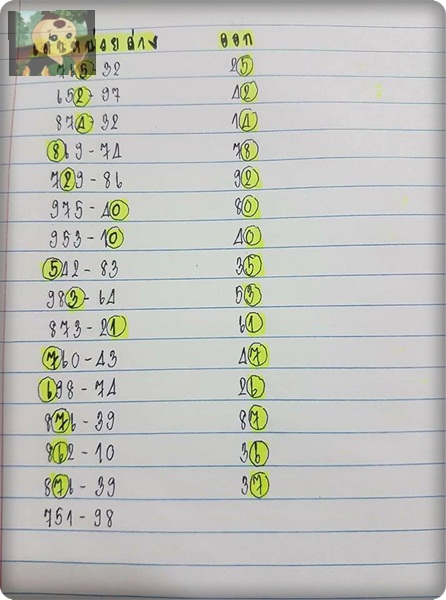 ล่าง ออก
765-92 25
652-97 42
874-32 14
869-74 78
729-86 92
975-40 80
953-10 40
542-83 35
983-64 53
873-21 61
760-43 47
698-74 26
876-39 87
862-10 36
876-39 37
751-98